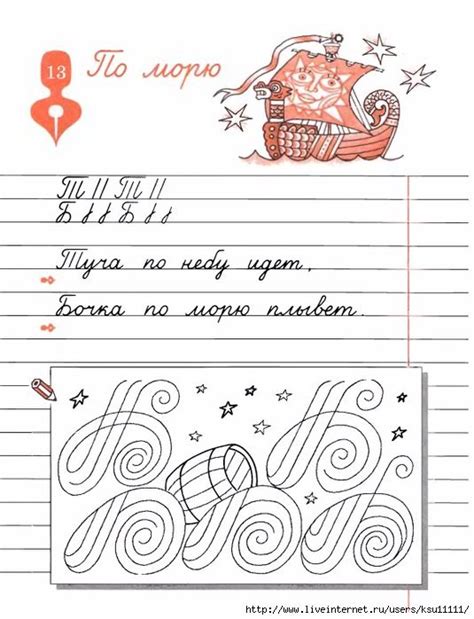 13 По морю
Т Т
Б Б
Туча по небу идет,
Бочка по морю плывет.
http://www.liveinternet.ru/users/ksu11111/